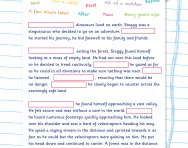 Next Once upon a time First All of a sudden
A few minutes later After Then Many years ago
dinosaurs lived on earth. Steggy was a
stegosaurus who decided to go on an adventure.
he started his journey, he bid farewell to his family and friends.
exiting the forest, Steggy found himself
looking at a maze of empty land. He had not seen this land before
so he decided to tread cautiously. he gazed as far
as he could in all directions to make sure nothing was near.
he listened , ensuring that there would be
no danger. he slowly began to saunter across the
seemingly safe land.
he found himself approaching a vast valley.
He felt unsure and was without a care in the world
he heard numerous footsteps quickly approaching him. He looked
over his shoulder and saw a herd of velociraptors heading his way.
He spied a raging stream in the distance and sprinted towards it as
fast as he could but the velociraptors were gaining on him. He put
his head down and continued to canter. A forest was in the distance